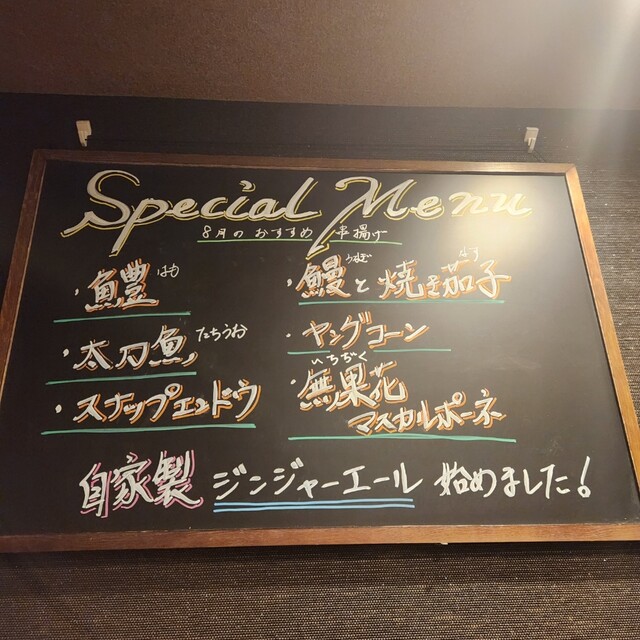 Special Menu
8月のおすすめ 串揚げ
・鱧 はも
・太刀魚 たちうお
・スナップエンドウ
・鰻と焼き茄子 うなぎ なす
・ヤングコーン
いちぢく
・無果花
マスカルポーネ
自家製 ジンジャーエール 始めました!